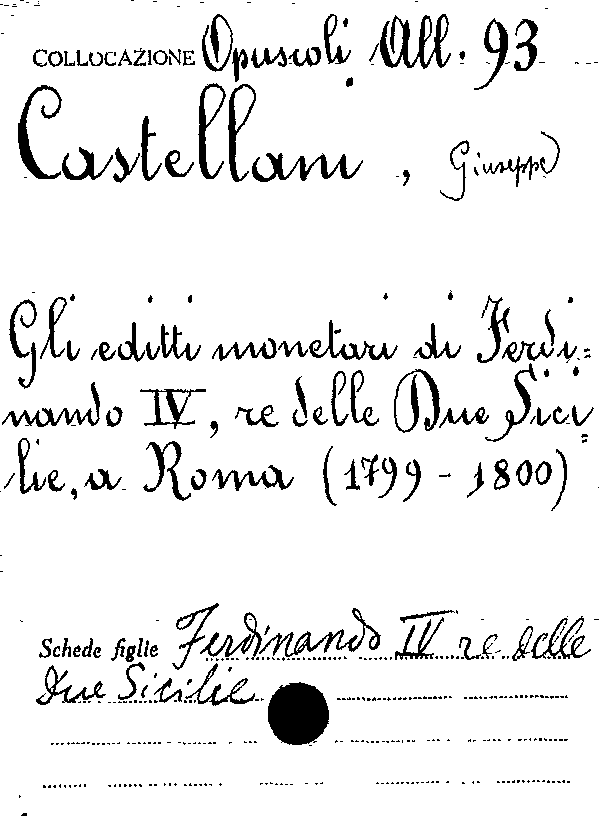 COLLOCAZIONE Opuscoli All. 93
Castellani, Giuseppe
Gli editti monetari di Ferdi=
nando IV, re delle Due Sici=
lie, a Roma (1799 - 1800)
Schede figlie Ferdinando IV re delle
Due Sicilie